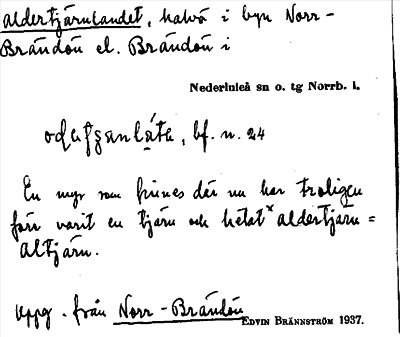 aldertjärnlandet, halvö i byn Norr-
Brändön el. Brändön i
Nederluleå sn o. tg Norrb. l.
bf. n. 24
En myr som finnes där nu har troligen
förr varit en tjärn och hetat x aldertjärn =
altjärn.
Uppg. från Norr-Brändön
EDVIN BRÄNNSTRÖM 1937.